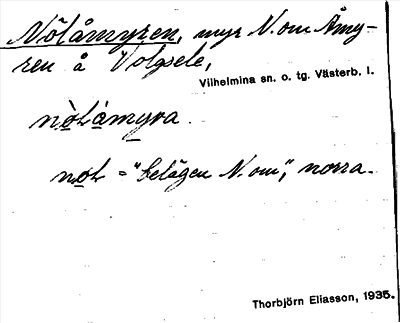 Nölåmyren, myr N. om Åmy-
ren å Volgsele,
Vilhelmina sn. o. tg. Västerb. l.
nò̱ḷåmyra.
nö̱ḷ = "belägen N. om", norra.
Thorbjörn Eliasson, 1935.